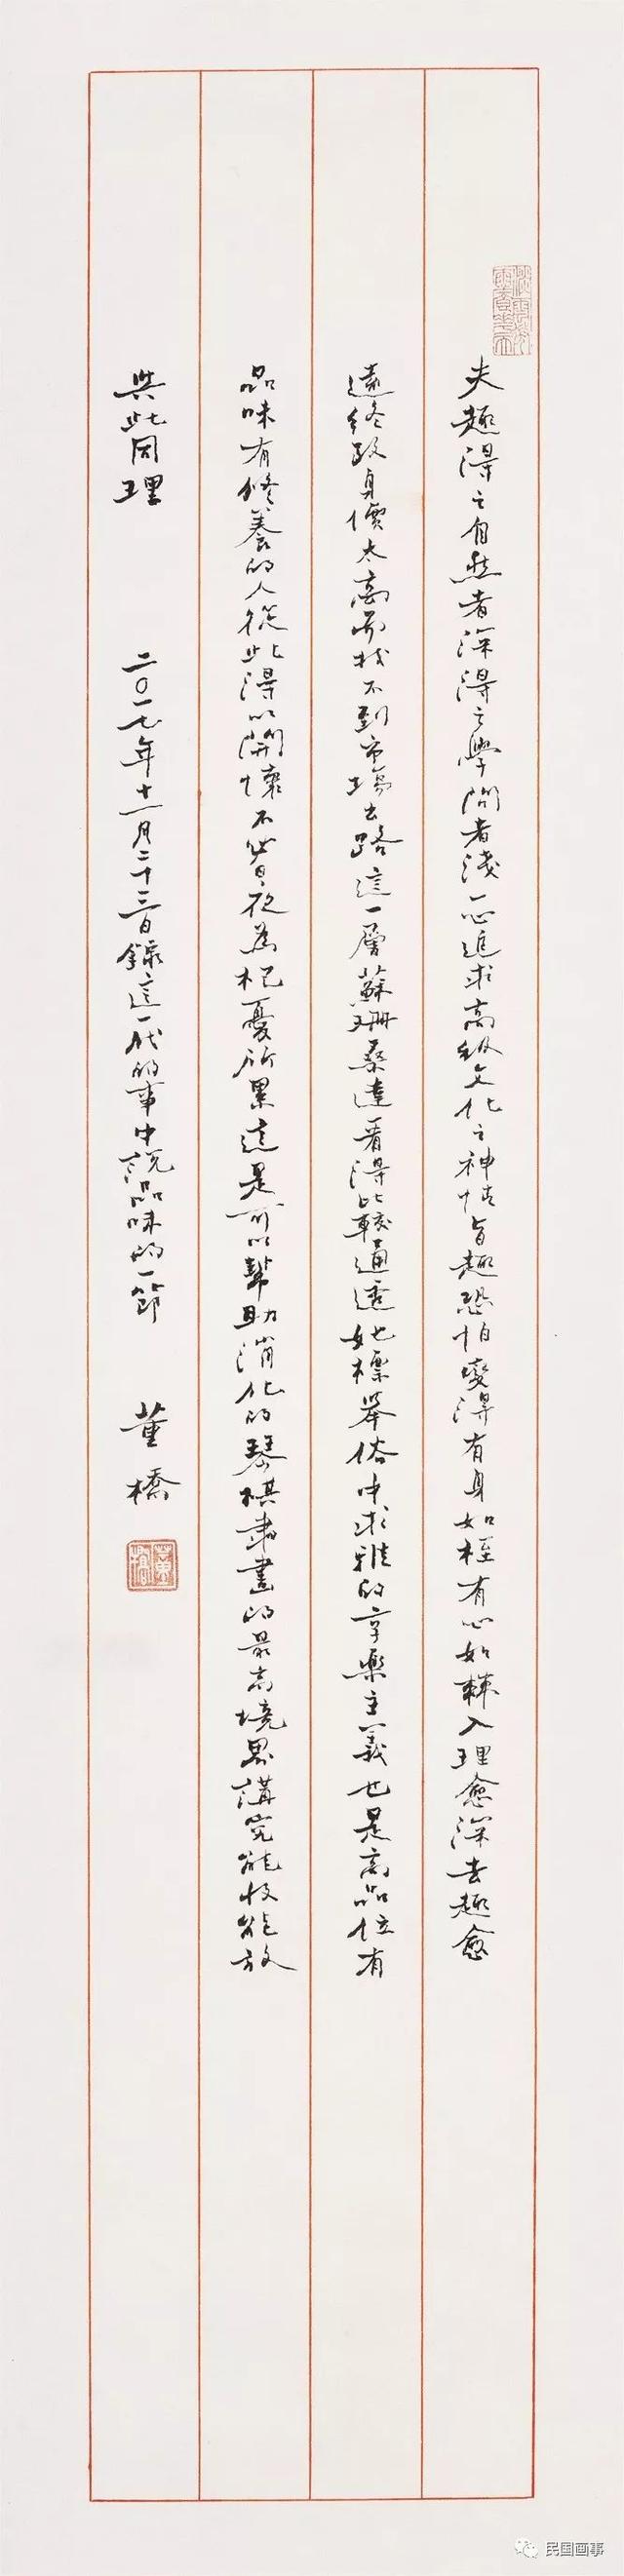 夫趣得之自然者深得之學問者淺一心追求高級文化之神情旨趣恐怕變得有身如桎有心如棘入理愈深去趣愈
遠終致身價太高而找不到市場出路這一層蘇珊桑達看得比較通透她標舉俗中求雅的享樂主義也是高品位有
品味有修養的人從此得以開懷不必日夜為杞憂所累這是可以幫助消化的琴棋書畫的最高境界講究能收能放
與此同理
二〇一七年十一月二十三日錄這一代的事中說品味的一節
董橋
董橋
民国画事